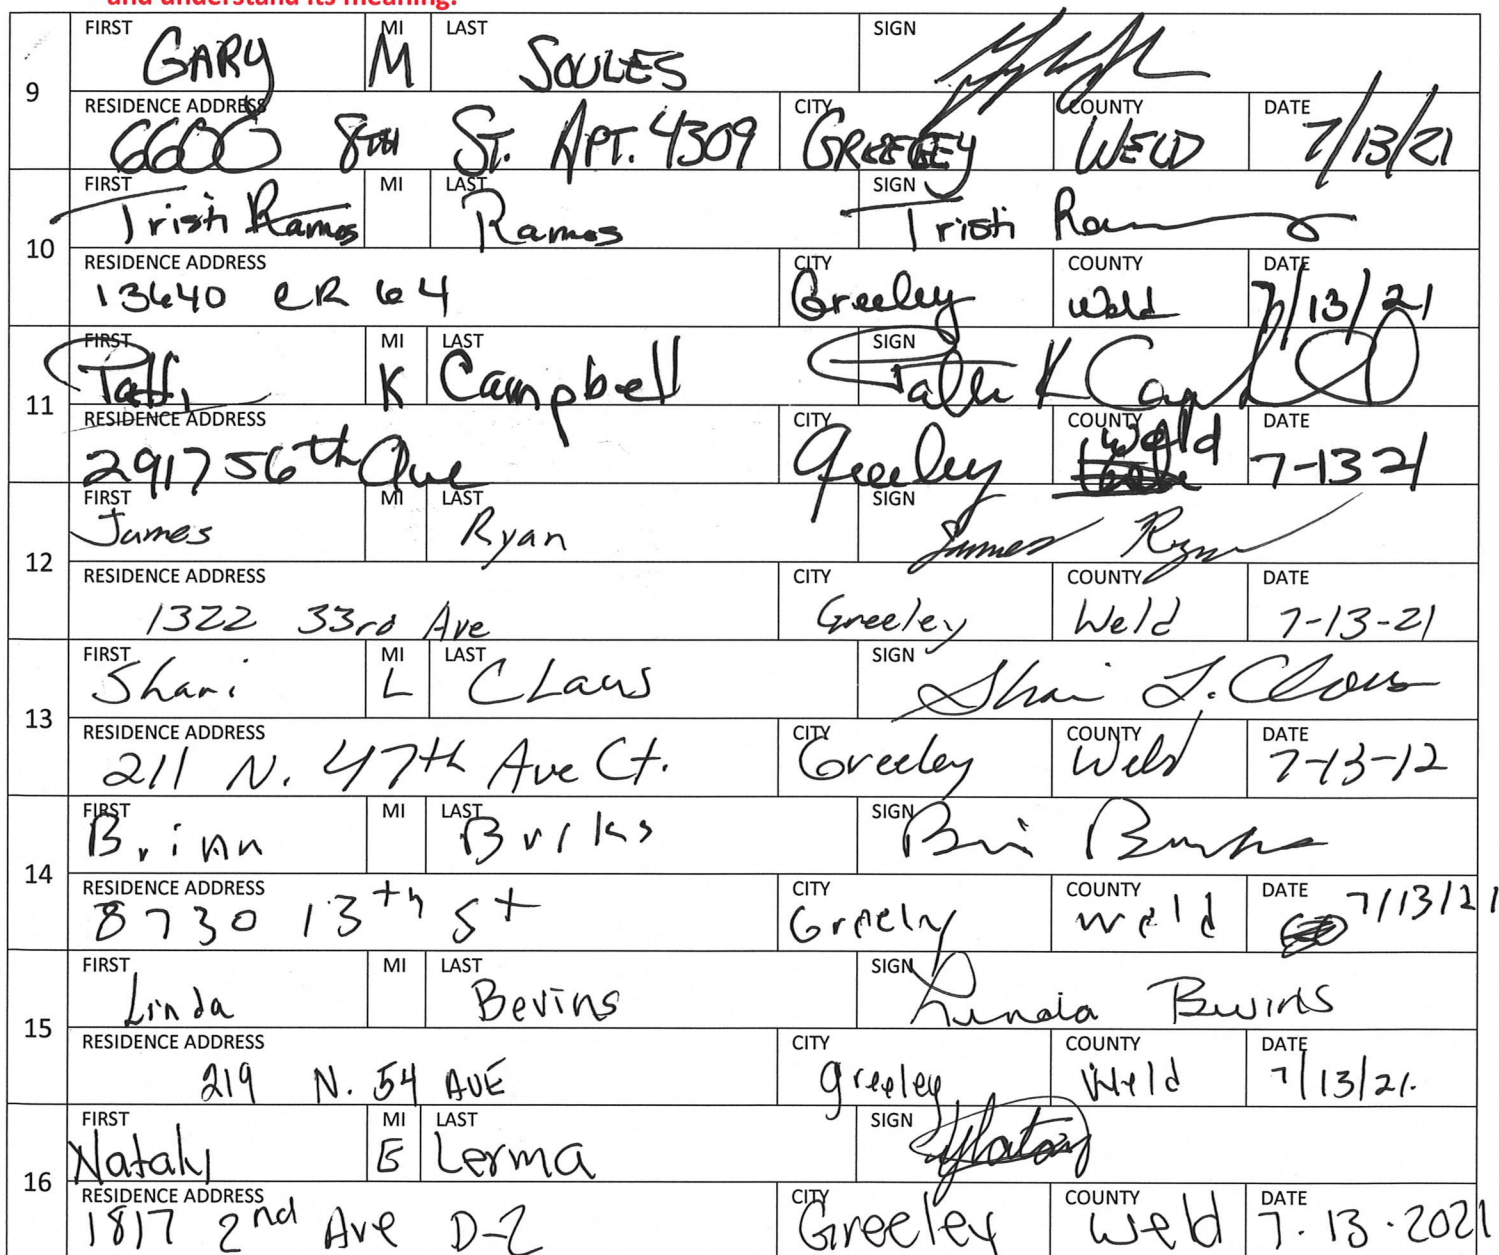 and understand its meaning.
FIRST GARY MI M LAST SOULES SIGN
9
RESIDENCE ADDRESS 6600 8TH ST. APT. 4309 CITY GREELEY COUNTY WELD DATE 7/13/21
FIRST Tristi Ramos MI LAST Ramos SIGN Tristi
10
RESIDENCE ADDRESS 13640 CR 64 CITY Greeley COUNTY Weld DATE 7/13/21
FIRST Patti MI K LAST Campbell SIGN Patti K
11
RESIDENCE ADDRESS 2917 56th Ave CITY Greeley COUNTY Weld DATE 7-13 21
FIRST James MI LAST Ryan SIGN James Ryan
12
RESIDENCE ADDRESS 1322 33rd Ave CITY Greeley COUNTY Weld DATE 7-13-21
FIRST Shari MI L LAST CLaus SIGN Shari L. Claus
13
RESIDENCE ADDRESS 211 N. 47th Ave Ct. CITY Greeley COUNTY Weld DATE 7-13-12
FIRST MI LAST SIGN
14
RESIDENCE ADDRESS 8730 13th St CITY Greely COUNTY Weld DATE 7/13/21
FIRST Linda MI LAST Bevins SIGN Linda Bevins
15
RESIDENCE ADDRESS 219 N. 54 AVE CITY greeley COUNTY Weld DATE 7/13/21.
FIRST Nataly MI E LAST Lerma SIGN
16
RESIDENCE ADDRESS 1817 2nd Ave D-2 CITY Greeley COUNTY Weld DATE 7.13.2021